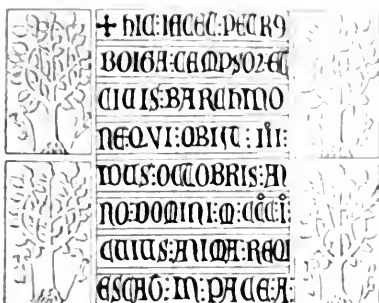 ✠ hIC: IACET: PETRꝰ
BOIGA: CAMPSOR: ET
CIVIS: BARChINO
NE: QVI: OBIIT: III:
IDUS: OCTOBRIS: AN
NO: DOMINI: M: CCC: I:
CUIUS: ANIMA: REQUI
ESCAT: IN: PACE: A: